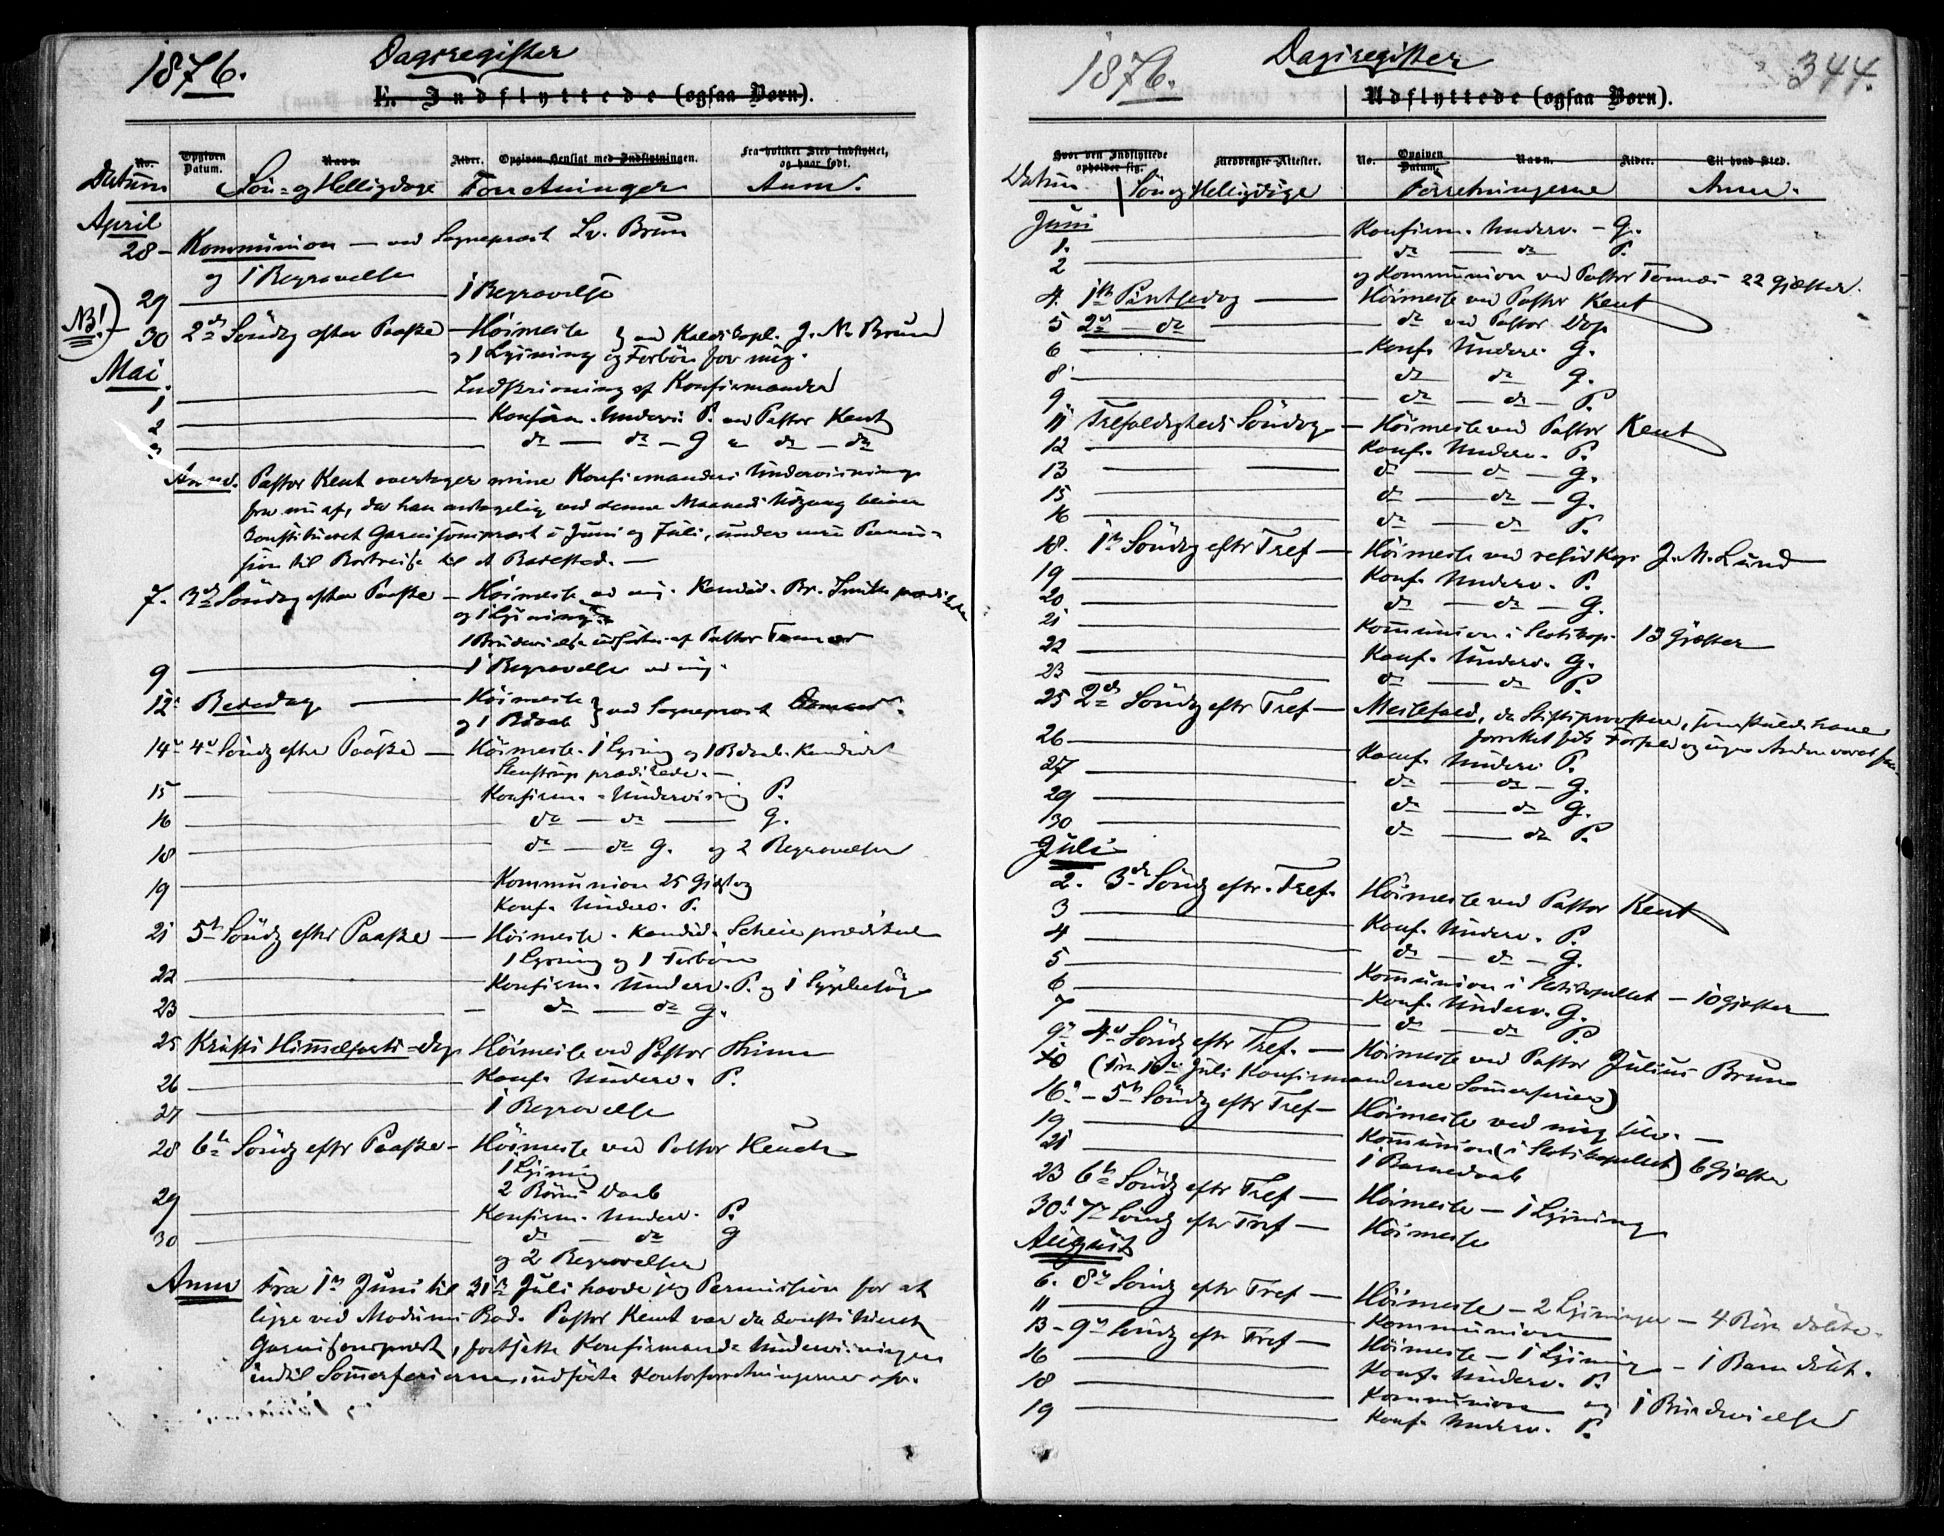 1876. Dagsregister
E. Indflyttede (ogsaa Børn).
No. Opgiven Datum. Navn. Alder. Opgiven Hensigt med Indflytningen. Fra hvilket Sted indflyttet, og hvor født.
Datum Søn- og Helligdage Forretninger Anm.
April
28 - Kommunion - ved Sognepræst Lv. Brun
og 1 Begravelse
29 1 Begravelse
NB! 30 2den Søndg efter Paaske - Høimesse } ved J. N. Brun
og 1 Lysning og Forbøn for mig.
Mai
1 Indskrivning af Konfirmander
2 Konfirm. Underv. P. ved Pastor Kent
3 do - do - G " do - do
Anm. Pastor Kent overtager mine Konfirmanders Undervisning
fra nu af, da han antagelig ved denne Maaneds Udgang bliver
konstitueret Garnisonspræst i Juni og Juli, under min Permis-
sion til Bortreise til et Badested. -
7. 3die Søndag efter Paaske - Høimesse ved mig. Kandid. Br.
og 1 Lysning
1 Brudevielse udførtes af Pastor
9 1 Begravelse ved mig.
12. Bededag - Høimesse } ved Sognepræst
og 1 Bdaab
14de 4de Søndg efter Paaske - Høimesse. 1 Lysning og 1 Bdaab. Kandidat
Stenstrup prædikede. -
15 Konfirm. - Undervisning P.
16 do - do - G.
18 do - do G. og 2 Begravelser
19 Kommunion 25 Gjæst og
Konf. Underv. P.
21 5te Søndg efter Paaske - Høimesse. Kandid. Scheie prædikede
1 Lysning og 1 Forbøn
22 Konfirm. Underv. P. og 1 Sygebesøg
23 do - do G.
25 Kristi Himmelfarts-dag Høimesse ved Pastor
26 Konf. Underv. P.
27 1 Begravelse
28 6te Søndg efter Paaske - Høimesse ved Pastor Heuch
1 Lysning
2 Børns Daab
29 Konfirm. Underv. P.
30 do - do G
og 2 Begravelser
Anm Fra 1ste Juni til 31te Juli havde jeg Permission for at
ligge ved Modums Bad. Pastor Kent var da konstitueret
Garnisonspræst, fortsatte Konfirmande Undervisningen
indtil Sommerferierne, indførte Kontorforretningerne osv.
1876. Dagsregister 344.
Udflyttede (ogsaa Børn).
Hvor den Indflyttede opholder sig. Medbragte Attester. No. Opgiven Datum. Navn. Alder. Til hvad Sted.
Datum Søn og Helligdage Forretningerne Anm.
Juni
1. Konfirm. Underv. - G.
2 do - do P.
og Kommunion ved Pastor 22 Gjæster.
4. 1ste Pintsedag - Høimesse ved Pastor Kent
5 2den - do - do ved Pastor
6 Konf. Underv. G.
8 do do G.
9. do - do - P.
11 Trefoldigheds Søndag - Høimesse ved Pastor Kent
12 Konf. Underv. P.
13 do - do - G.
15 do - do - G.
16 do - do P.
18. 1ste Søndg efter Tref - Høimesse ved resid Kap. J. M. Lund
19 Konf. Underv. P.
20 do - do - G.
21 Kommunion i Slotskap. 13 Gjæster
22 Konf. Underv. G.
23 do - do P.
25 2den Søndg efter Tref - Messefald, da Stiftsprovsten, som skulde have
forrettet fik Forfald og ingen Anden
26 Konf. Underv P.
27 do - do - G.
29 do - do G.
30 do - do P.
Juli
2. 3die Søndg efter. Tref. Høimesse ved Pastor Kent
3 Konf. Underv. P.
4 do - do - G.
5 Kommunion i Slotskapellet - 10 Gjæster
6 Konf. Underv. G.
7 do - do P.
9de 4de Søndg efter Tref. - Høimesse ved Pastor Julius Brun
10 (Fra 10de Juli Konfirmanderne Sommerferier)
16. - 5te Søndg efter Tref - Høimesse ved mig selv. -
19 Kommunion (i Slotskapellet) 6 Gjæster
21 1 Barnedaab
23 6te Søndg efter Tref - Høimesse - 1 Lysning
30. 7de Søndg efter Tref - Høimesse
August
6. 8de Søndg efter Tref - Høimesse - 2 Lysninger - 4 Børn døbte.
11 Kommunion
13 - 9de Søndg eftr Tref - Høimesse - 1 Lysning - 1 Barn døbt.
16 Konf. Underv. P.
18 Kommunion og 1 Brudevielse
19 Konf. Underv. P.